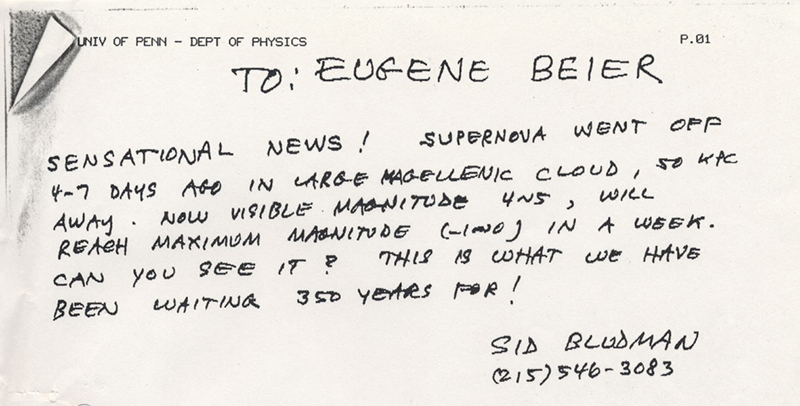 UNIV OF PENN - DEPT OF PHYSICS P.01
TO: EUGENE BEIER
SENSATIONAL NEWS! SUPERNOVA WENT OFF
4-7 DAYS AGO IN LARGE MAGELLENIC CLOUD, 50 KPC
AWAY. NOW VISIBLE MAGNITUDE 4~5, WILL
REACH MAXIMUM MAGNITUDE (-1~0) IN A WEEK.
CAN YOU SEE IT? THIS IS WHAT WE HAVE
BEEN WAITING 350 YEARS FOR!
SID BLUDMAN
(215)546-3083